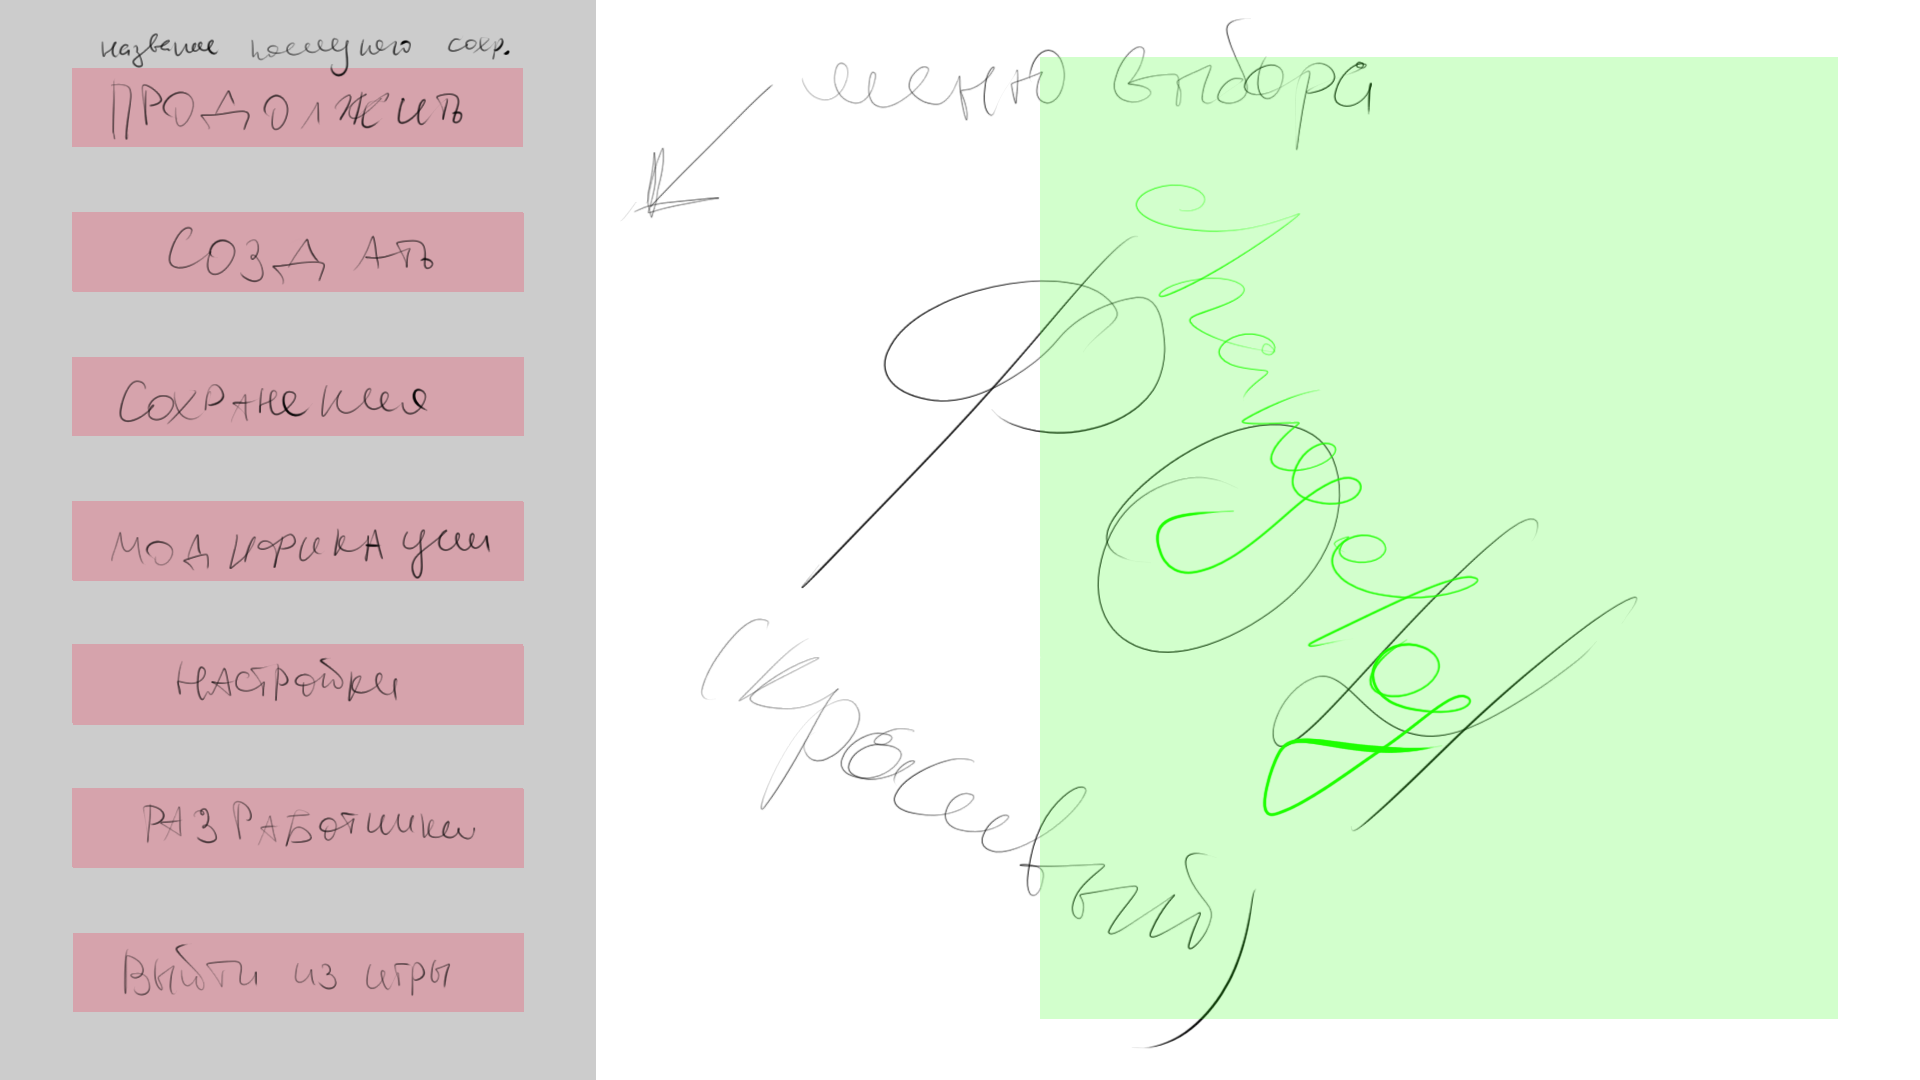 название последнего сохр.
ПРОДОЛЖИТЬ
СОЗДАТЬ
Сохранения
модификации
настройки
РАЗРАБОТЧИКИ
Выйти из игры
меню выбора
Фон
(красивый)